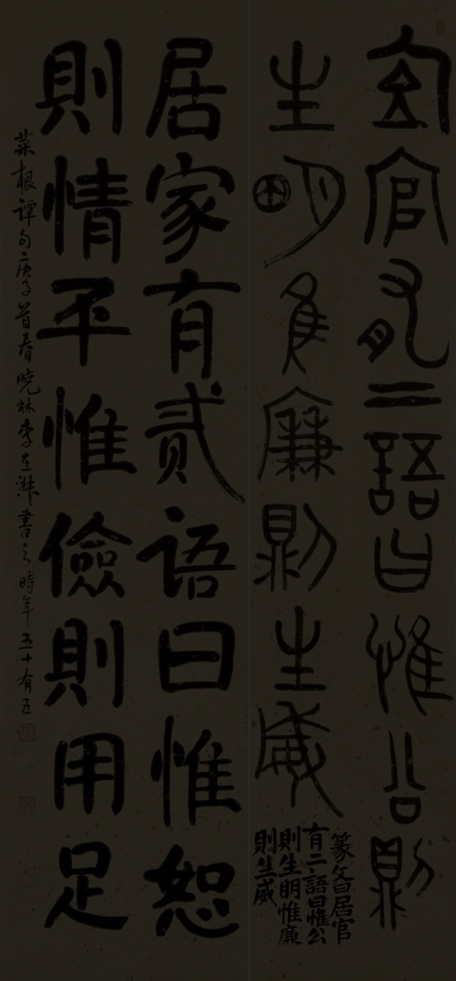 居官有二語曰惟公則
生明惟廉則生威
篆文曰居官
有二語曰惟公
則生明惟廉
則生威
居家有貳语曰惟恕
則情平惟儉則用足
菜根譚句庚子首春曉林李書之時年五十有五